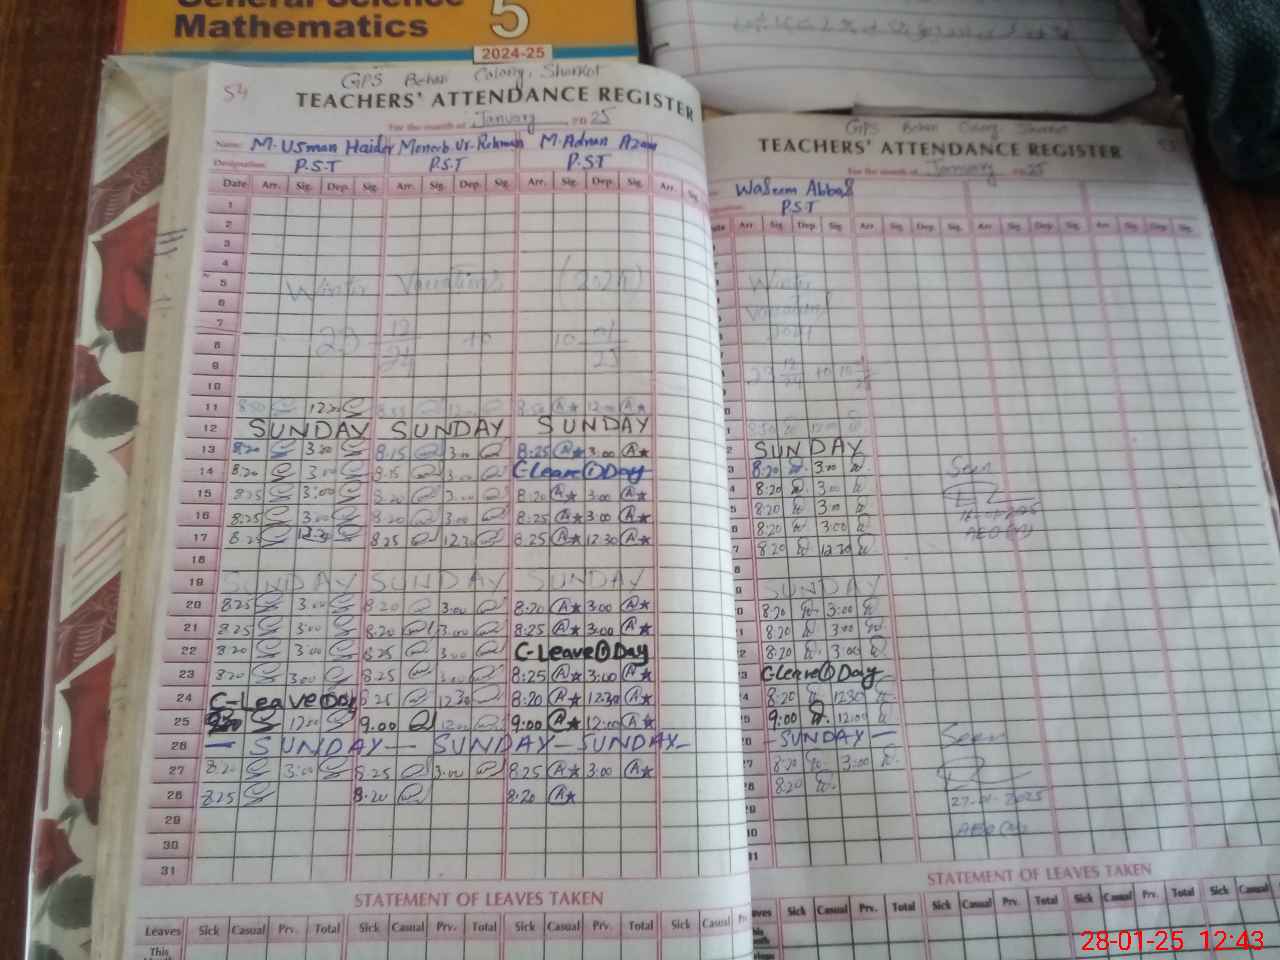 General Science
Mathematics 5
2024-25
54
GPS Behari Colony, Shorkot
TEACHERS' ATTENDANCE REGISTER
For the month of January 20 25
Name: M. Usman Haider Moneeb Ur-Rehman M. Adnan Azam
Designation P.S.T P.S.T P.S.T
Date Arr. Sig. Dep. Sig. Arr. Sig. Dep. Sig. Arr. Sig. Dep. Sig. Arr. Sig.
1
2
3
4
5 Winter Vacations (2024)
6
7
8 23 12/24 to 10 01/25
9
10
11 8:50 12:00 8:50 12:00
12 SUNDAY SUNDAY SUNDAY
13 8:20 3:00 8:15 3:00 8:25 A★ 3:00 A★
14 8:20 3:00 8:15 3:00 C-Leave ① Day
15 8:25 3:00 8:20 3:00 8:20 A★ 3:00 A★
16 8:25 3:00 8:20 3:00 8:25 A★ 3:00 A★
17 8:25 12:30 8:25 12:30 8:25 A★ 12:30 A★
18
19 SUNDAY SUNDAY SUNDAY
20 8:25 3:00 8:20 3:00 8:20 A★ 3:00 A★
21 8:25 3:00 8:20 3:00 8:25 A★ 3:00 A★
22 8:20 3:00 8:25 3:00 C-Leave ① Day
23 8:20 3:00 8:25 3:00 8:25 A★ 3:00 A★
24 C-Leave ① Day 8:25 12:30 8:20 A★ 12:30 A★
25 12:00 9:00 12:00 9:00 A★ 12:00 A★
26 — SUNDAY — SUNDAY — SUNDAY —
27 8:20 3:00 8:25 3:00 8:25 A★ 3:00 A★
28 8:25 8:20 8:20 A★
29
30
31
STATEMENT OF LEAVES TAKEN
Leaves Sick Casual Prv. Total Sick Casual Prv. Total Sick Casual Prv. Total Sick Casual Prv.
This
GPS Behari Colony Shorkot
TEACHERS' ATTENDANCE REGISTER
For the month of January 20 25
Waseem Abbas
P.S.T
Arr. Sig. Dep. Sig. Arr. Sig. Dep. Sig. Arr. Sig. Dep. Sig. Arr. Sig. Dep. Sig.
Winter
Vacation
2024
23 12/24 to 10
8:50 12:00
SUNDAY
8:20 3:00 Seen
8:20 3:00
8:20 3:00
8:20 3:00
8:20 12:30
SUNDAY
8:20 3:00
8:20 3:00
8:20 3:00
C-Leave ① Day
8:20 12:30
9:00 12:00
— SUNDAY — Seen
8:20 3:00
8:20
27-01-2025
STATEMENT OF LEAVES TAKEN
Sick Casual Prv. Total Sick Casual Prv. Total Sick Casual Prv. Total Sick Casual
28-01-25 12:43